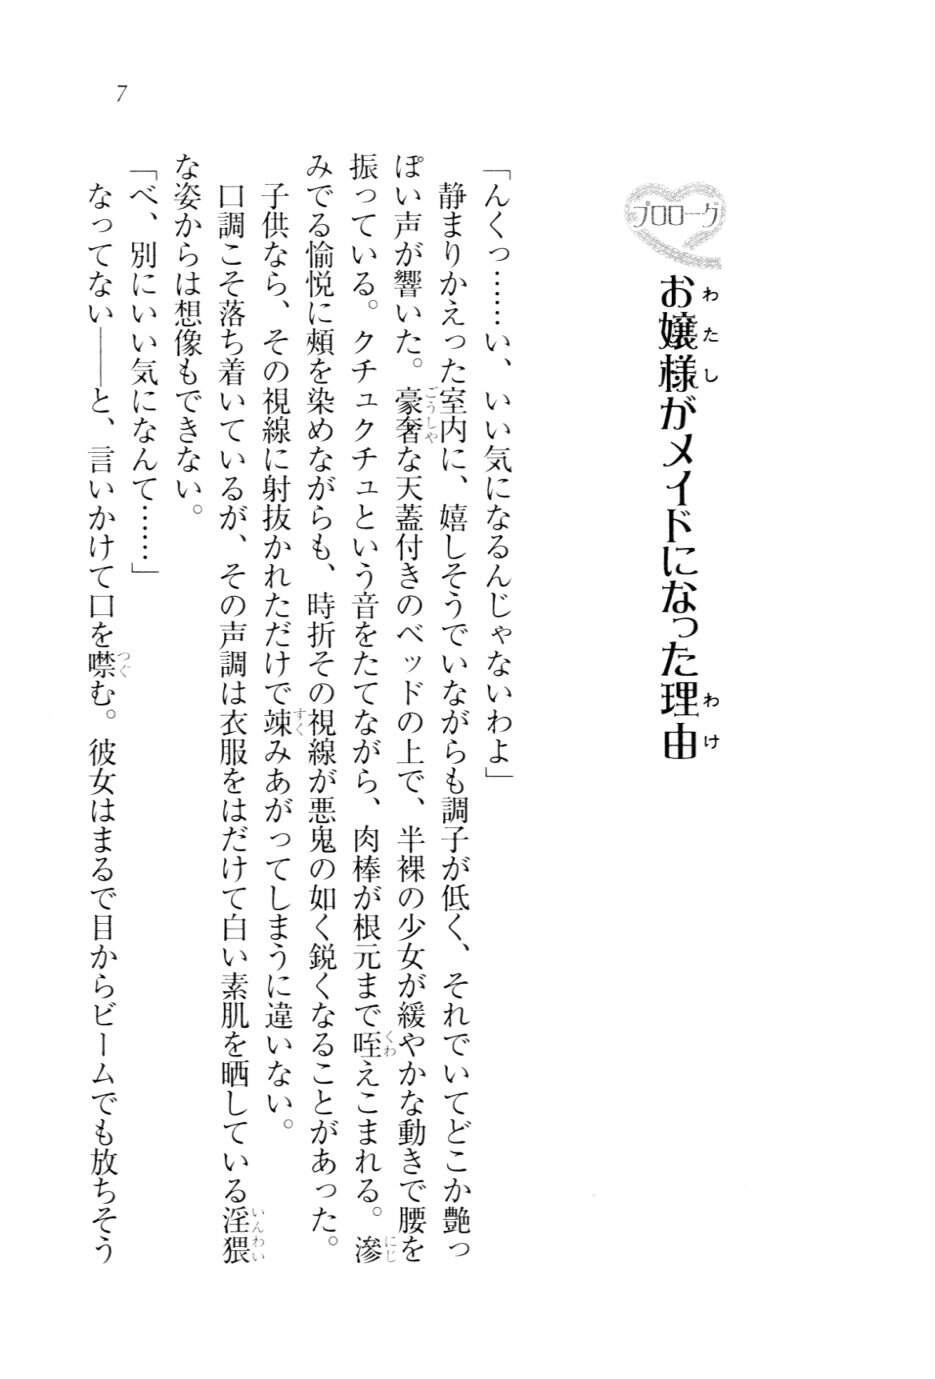 7
プロローグ
お嬢様がメイドになった理由
わたし わけ
「んくっ……い、いい気になるんじゃないわよ」
静まりかえった室内に、嬉しそうでいながらも調子が低く、それでいてどこか艶っ
ぽい声が響いた。豪奢な天蓋付きのベッドの上で、半裸の少女が緩やかな動きで腰を
ごうしや
振っている。クチュクチュという音をたてながら、肉棒が根元まで咥えこまれる。滲
くわ にじ
みでる愉悦に頰を染めながらも、時折その視線が悪鬼の如く鋭くなることがあった。
子供なら、その視線に射抜かれただけで竦みあがってしまうに違いない。
すく
口調こそ落ち着いているが、その声調は衣服をはだけて白い素肌を晒している淫猥
いんわい
な姿からは想像もできない。
「べ、別にいい気になんて……」
なってない――と、言いかけて口を噤む。彼女はまるで目からビームでも放ちそう
つぐ